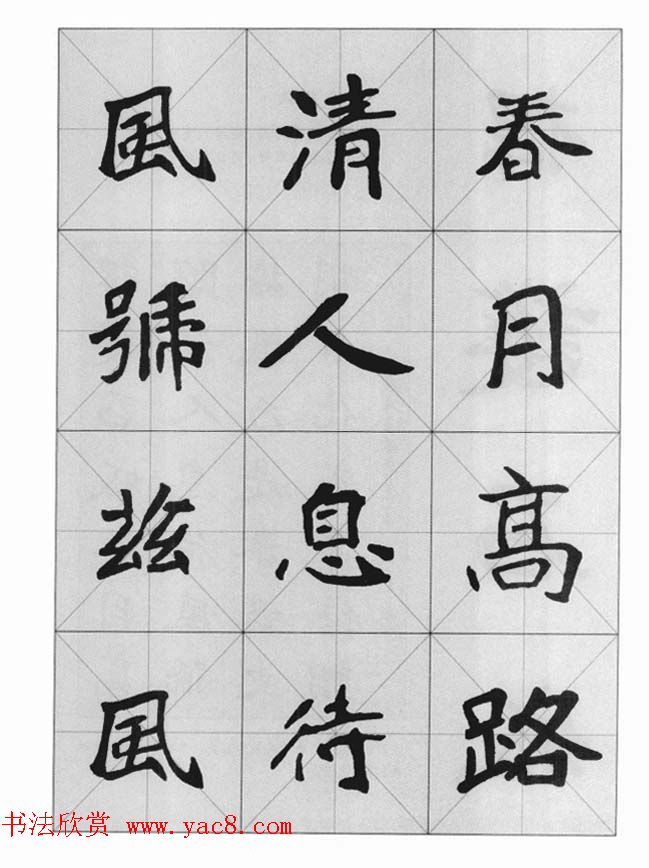 春月高路
清人息待
風號兹風
书法欣赏 www.yac8.com